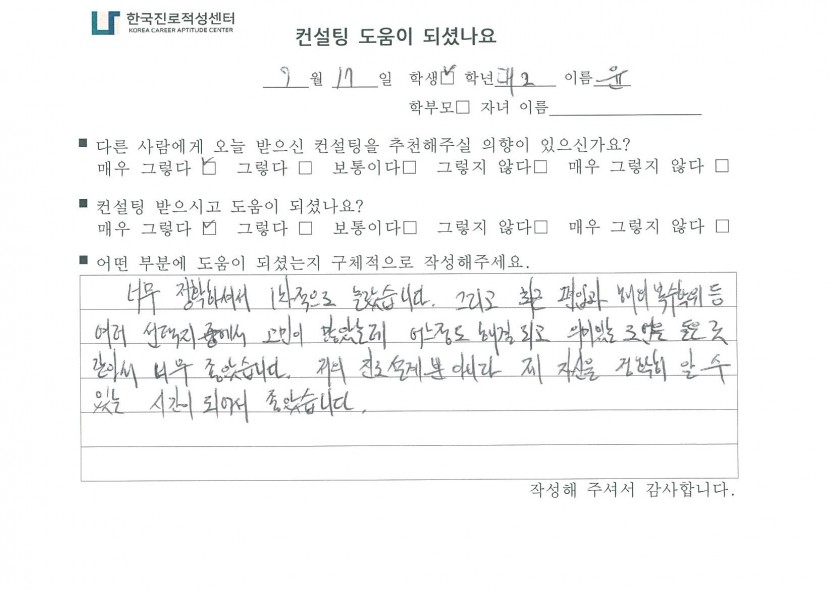 한국진로적성센터
KOREA CAREER APTITUDE CENTER
컨설팅 도움이 되셨나요
9월 17일 학생☑ 학년 대2 이름 윤
학부모□ 자녀 이름
■ 다른 사람에게 오늘 받으신 컨설팅을 추천해주실 의향이 있으신가요?
매우 그렇다 ☑ 그렇다 □ 보통이다□ 그렇지 않다□ 매우 그렇지 않다 □
■ 컨설팅 받으시고 도움이 되셨나요?
매우 그렇다 ☑ 그렇다 □ 보통이다□ 그렇지 않다□ 매우 그렇지 않다 □
■ 어떤 부분에 도움이 되셨는지 구체적으로 작성해주세요.
너무 정확하셔서 1차적으로 놀랐습니다. 그리고 최근 편입과 해외복수학위 등
여러 선택지 중에서 고민이 많았는데 어느정도 해결 되고 의미있는 조언을 들은 것
같아서 너무 좋았습니다. 저의 진로설계 뿐 아니라 제 자신을 정확히 알 수
있는 시간이 되어서 좋았습니다.
작성해 주셔서 감사합니다.